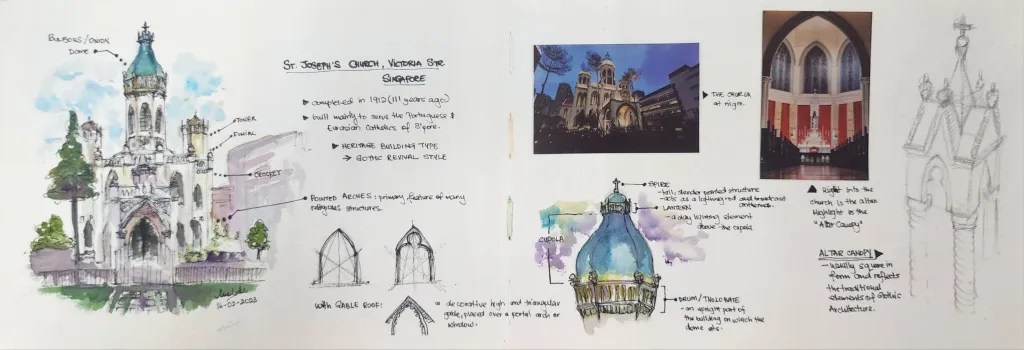 BULBOUS/ONION
DOME
ST. JOSEPH'S CHURCH, VICTORIA STR.
SINGAPORE
completed in 1912 (111 years ago)
built mainly to serve the Portuguese &
Eurasian Catholics of S'pore.
HERITAGE BUILDING TYPE
→ GOTHIC REVIVAL STYLE
TOWER
FINIAL
CROCKET
POINTED ARCHES: primary feature of many
religious structures.
14-02-2023
with GABLE ROOF:
a decorative high and triangular
gable, placed over a portal arch or
window.
THE CHURCH
at night.
SPIRE
- tall, slender pointed structure
- acts as a lightning rod and broadcast
antennas.
LANTERN
- a day lighting element
above the cupola
CUPOLA
DRUM/THOLOBATE
- an upright part of
the building on which the
dome sits.
Right into the
church is the altar
Highlight is the
"Altar Canopy"
ALTAR CANOPY
- usually square in
form and reflects
the traditional
elements of Gothic
Architecture.